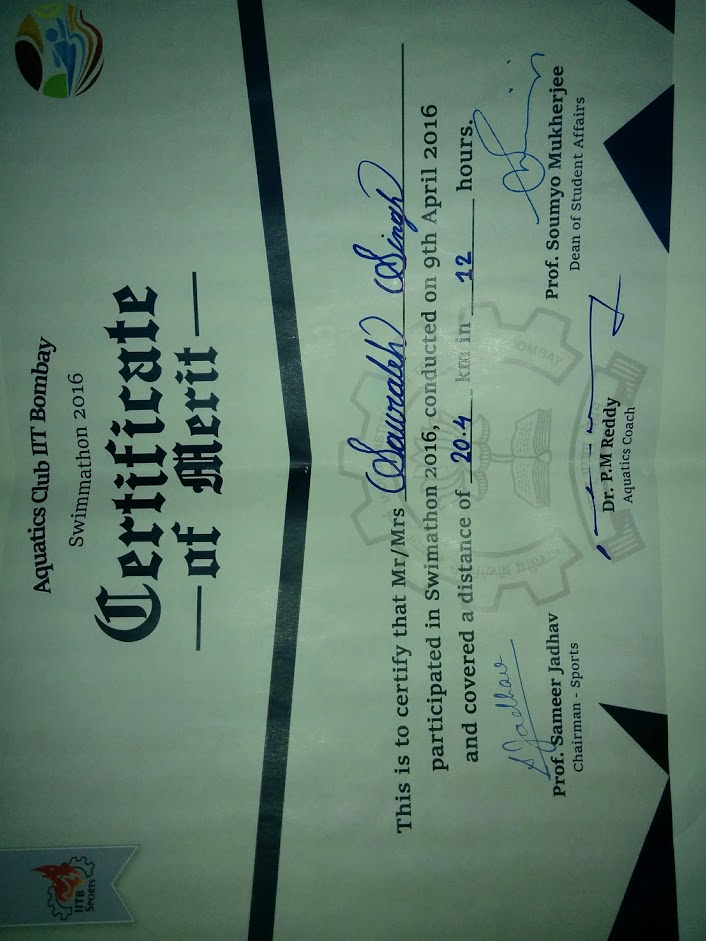 IITB
SPORTS
Aquatics Club IIT Bombay
Swimmathon 2016
Certificate
of Merit
This is to certify that Mr/Mrs Saurabh Singh
participated in Swimathon 2016, conducted on 9th April 2016
and covered a distance of 20.4 km in 12 hours.
SJadhav
Prof. Sameer Jadhav
Chairman - Sports
Dr. P.M Reddy
Aquatics Coach
Prof. Soumyo Mukherjee
Dean of Student Affairs
BOMBAY